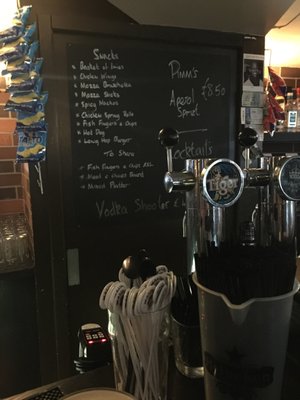 Snacks
Basket of Fries
Chicken Wings
Mozza Bruschetta
Mozza Sticks
Spicy Nachos
Chicken Spring Rolls
Fish Fingers & Chips
Hot Dog
Lamb Hip Burger
To Share
Fish Fingers & Chips
Meat & Cheese Board
Mixed Platter
Pimm's
Aperol £8.50
Spritz
Cocktails
Vodka Shooter £
Tiger